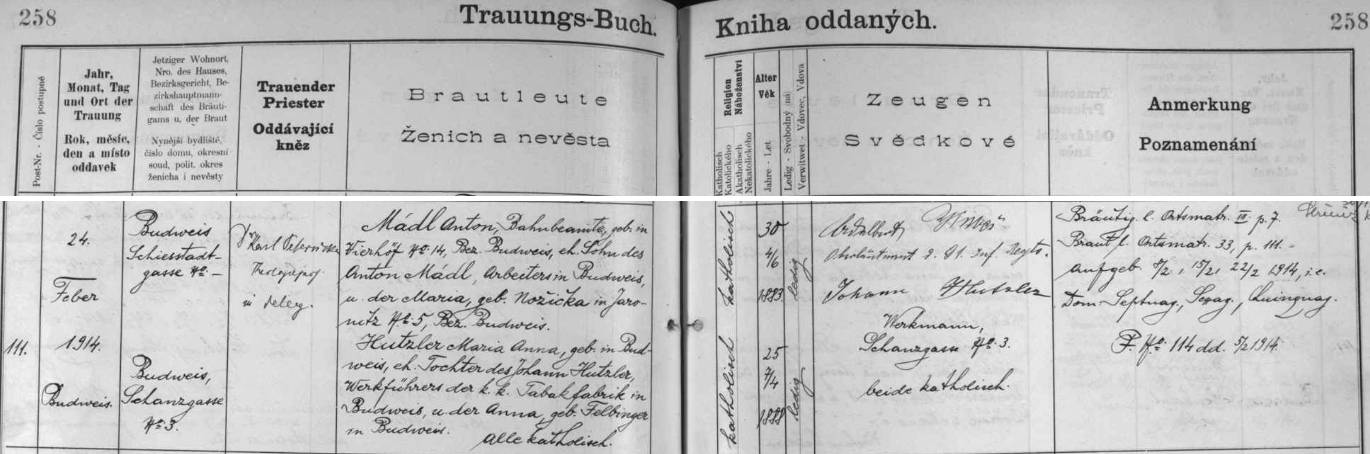 258
Trauungs-Buch.
Kniha oddaných.
258
Post-Nr. - Číslo postupné
Jahr,
Monat, Tag
und Ort der
Trauung
Rok, měsíc,
den a místo
oddavek
Jetziger Wohnort,
Nro. des Hauses,
Bezirksgericht, Be-
zirkshauptmann-
schaft des Bräuti-
gams u. der Braut
Nynější bydliště,
číslo domu, okresní
soud, polit. okres
ženicha i nevěsty
Trauender
Priester
Oddávající
kněz
Brautleute
Ženich a nevěsta
Religion
Náboženství
Katholisch
Katolického
Akatholisch
Nekatolického
Alter
Věk
Jahre - Let
Ledig - Svobodný ná
Verwitwet - Vdovec, Vdova
Zeugen
Svědkové
Anmerkung
Poznamenání
111.
24.
Feber
1914.
Budweis.
Budweis
Schiesstadt-
gasse No –
Budweis,
Schanzgasse
No 3.
Karl
Mádl Anton, Bahnbeamte, geb. in
Vierhöf No 14, Bez. Budweis, eh. Sohn des
Anton Mádl, Arbeiters in Budweis,
u. der Maria, geb. Nožička in Jaro-
nitz No 5, Bez. Budweis.
Hutzler Maria Anna, geb. in Bud-
weis, eh. Tochter des Johann Hutzler,
Werkführers der k. k. Tabakfabrik in
Budweis, u. der Anna, geb. Felbinger
in Budweis.
Alle katholisch.
katholisch
30
4/6
1883
ledig
katholisch
25
7/4
1888
ledig
Adalbert
Johann Hutzler
Werkmann,
Schanzgasse No 3.
beide katholisch.
Bräutig. l. Ortsmatr. III. p. 7.
Braut l. Ortsmatr. 33, p. 111. –
Aufgeb. 8/2, 15/2, 22/2 1914, i. e.
Dom. Septuag., Sexag., Quinquag.
P. No 114 dd. 5/2 1914.